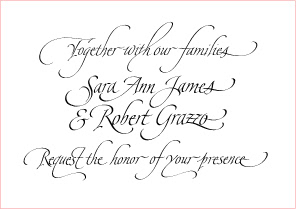 Together with our families
Sara Ann James
& Robert Grazzo
Request the honor of your presence